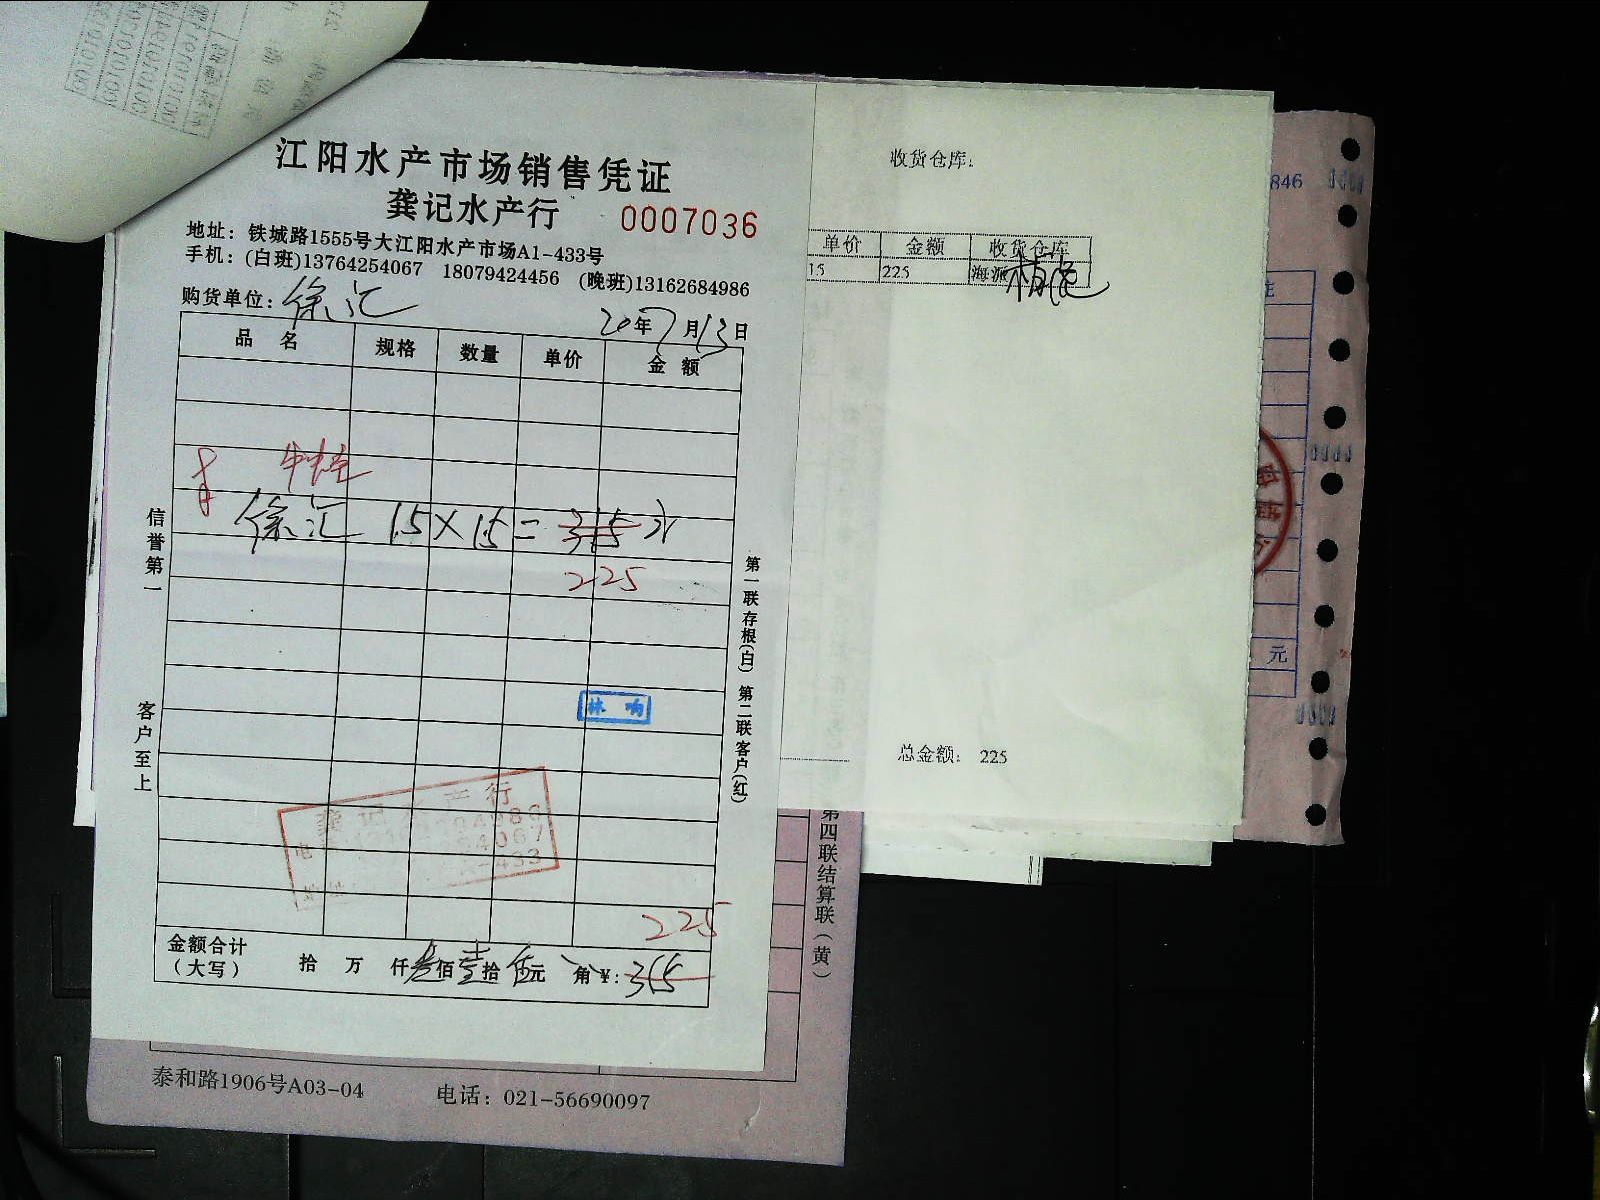 江阳水产市场销售凭证
龚记水产行 0007036
地址：铁城路1555号大江阳水产市场A1-433号
手机：(白班)13764254067 18079424456 (晚班)13162684986
购货单位：徐汇
20年7月13日
品 名 规格 数量 单价 金 额
徐汇 15×15=315元
225
林 响
225
金额合计
（大写） 拾 万 仟叁佰壹拾伍元 角 ¥：315
信誉第一
客户至上
第一联存根(白) 第二联客户(红)
收货仓库：
单价 金额 收货仓库
15 225 海派
总金额： 225
846
元
第四联结算联（黄）
泰和路1906号A03-04 电话：021-56690097